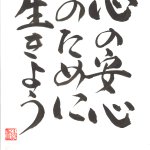 心の安心
のために
生きよう